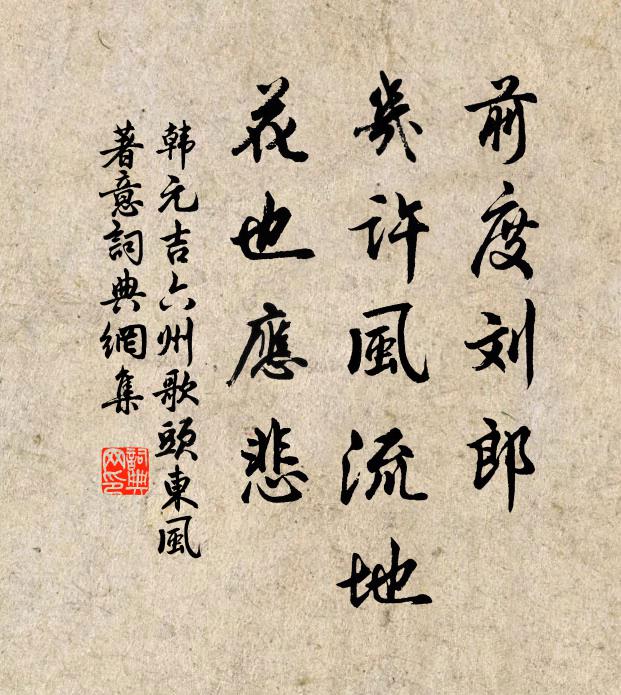 前度刘郎
几许風流地
花也應悲
韩元吉六州歌頭東風
著意詞典網集
詞典網印